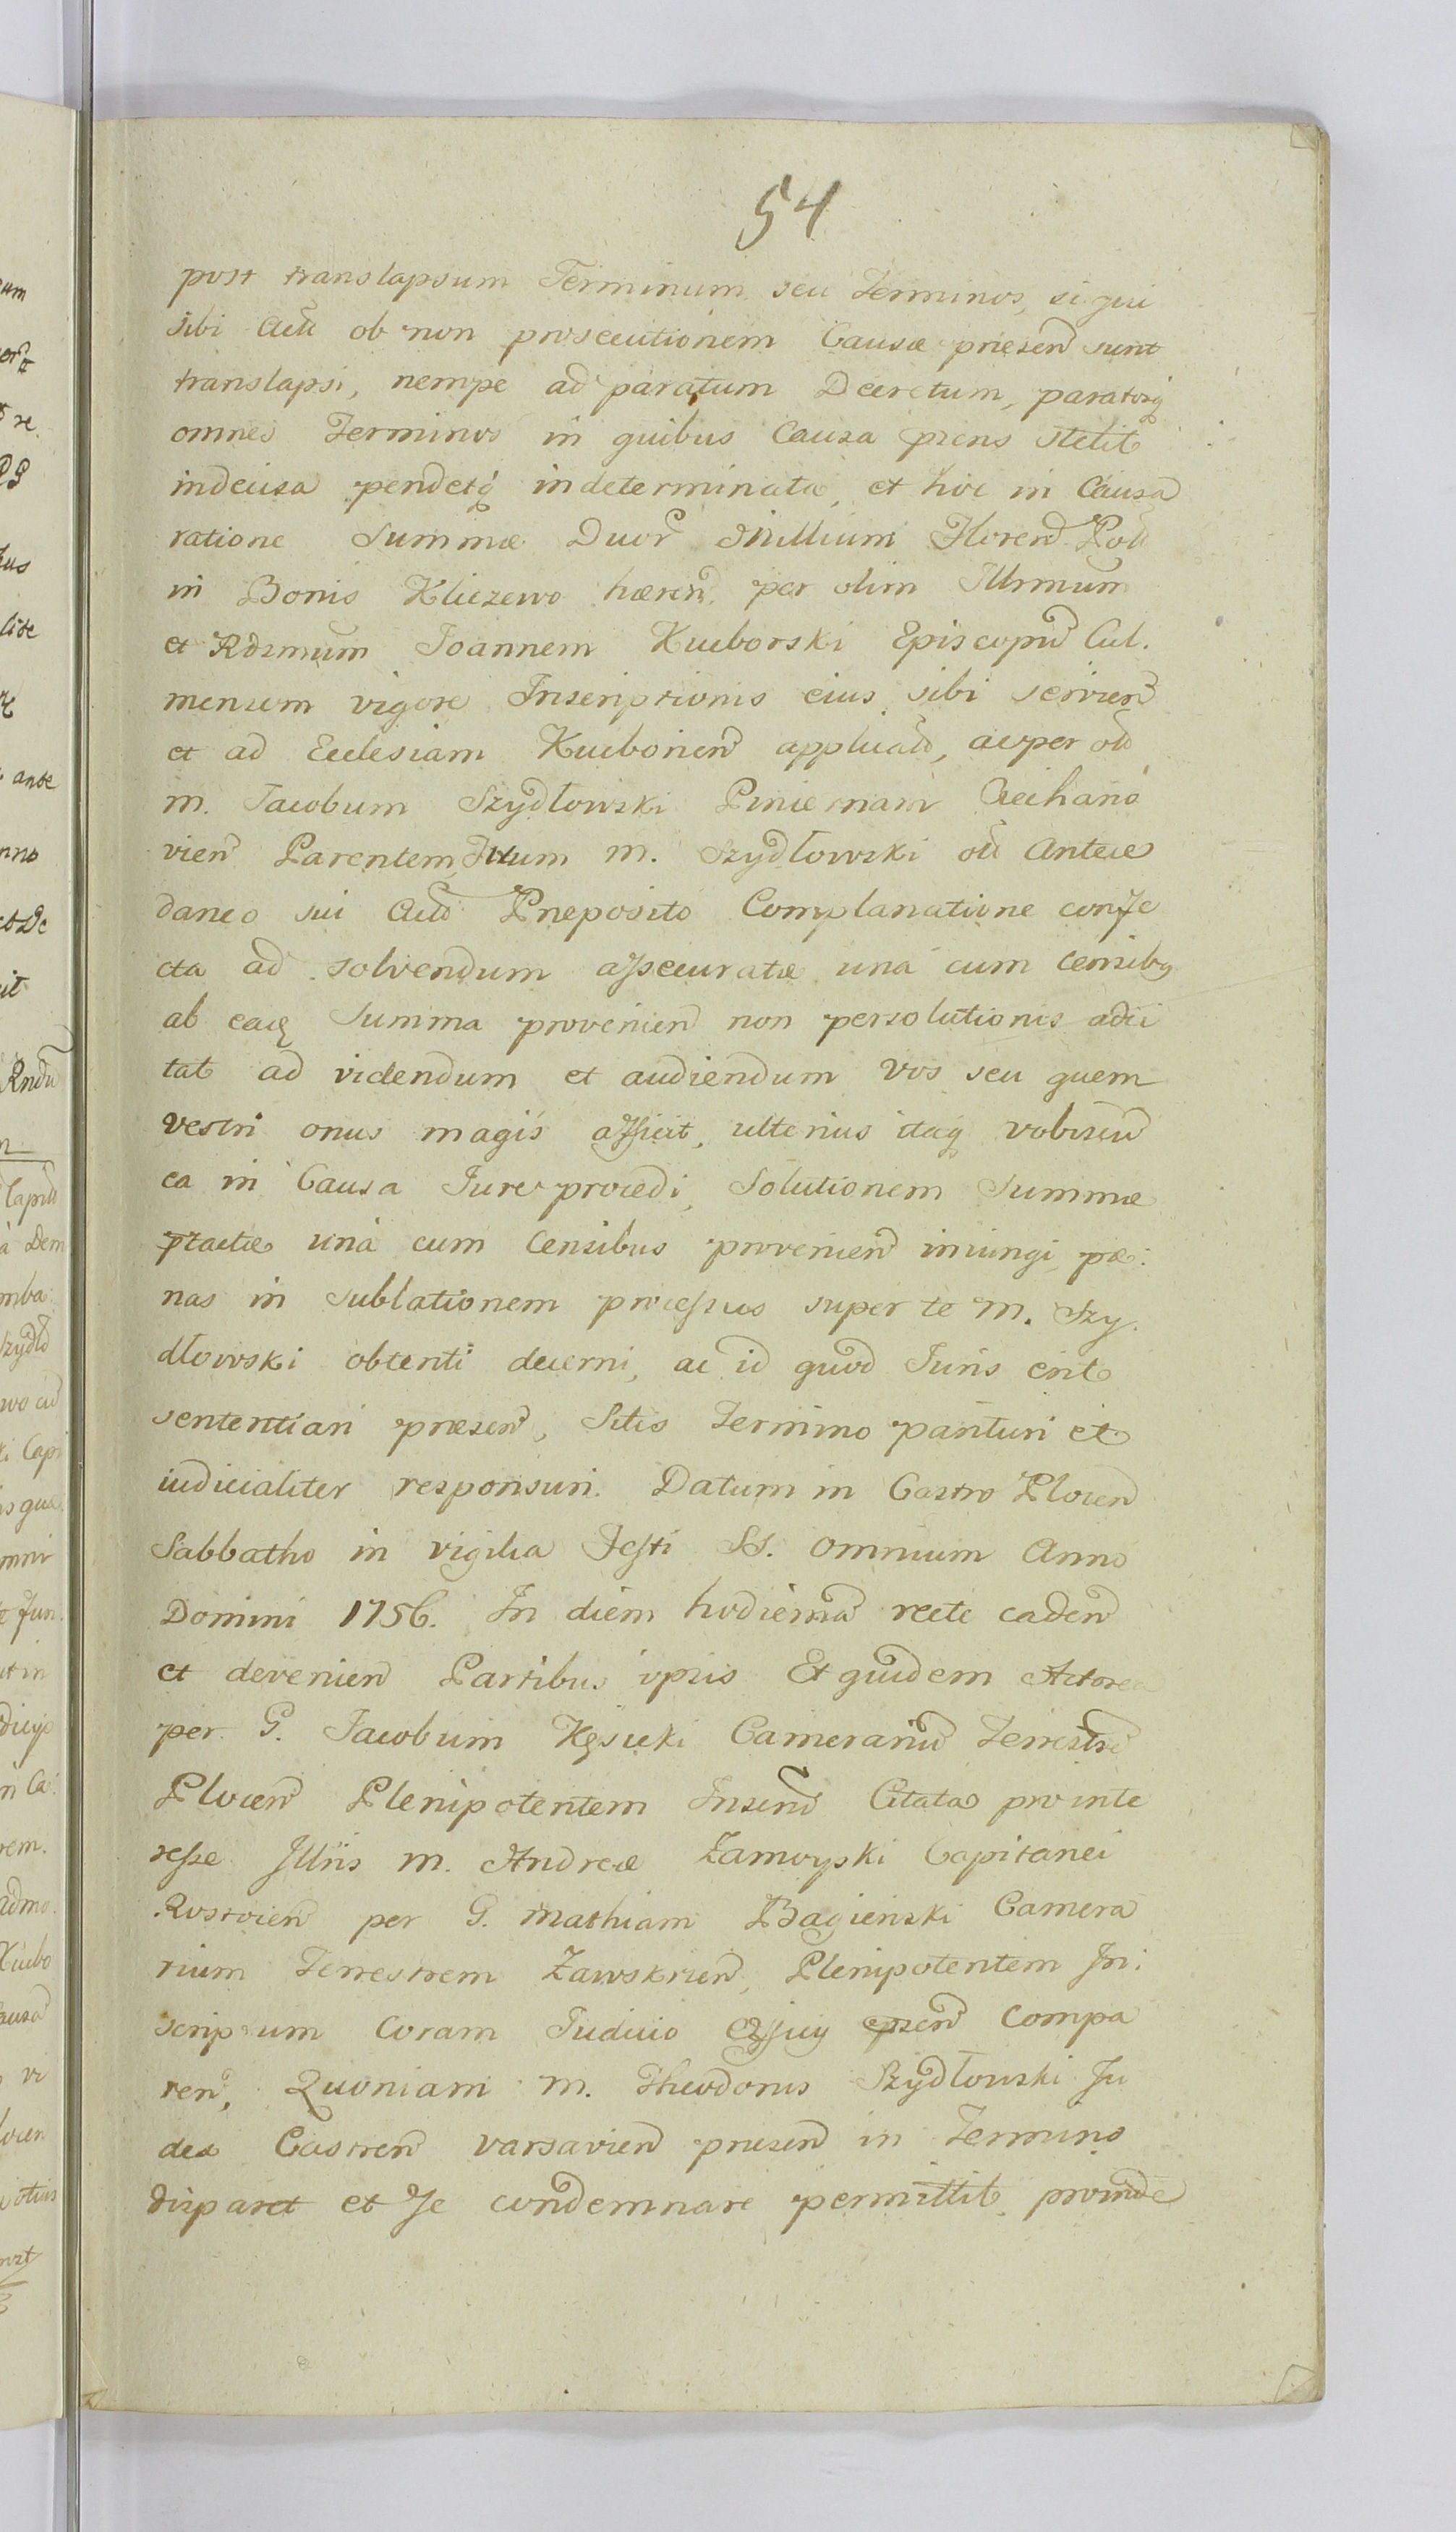 54
post translapsum Terminum seu Terminos, si qui
sibi Actu ob non prosecutionem Causæ præsen sunt
translapsi, nempe ad paratum Decretum, paratosq
omnes Terminos in quibus Causa præns stetit
indecisa pendetq indeterminata, et hoc in Causa
ratione Summæ Duor Millium Floren Pol
in Bonis Kliczewo hæren per olim Illrmum
et Rdsmum Joannem Kucborski Episcopu Cul.
mensem vigore Inscriptionis eius sibi servien
et ad Ecclesiam Kucbonien applicat, ac per ol
m. Jacobum Szydłowski Pincernam Ciechano
vien Parentem, tuum m. Szydłowski ol Antece
daneo sui Actu Præposito Complanatione confe
cta ad solvendum assecuratæ una cum censibq
ab eaq Summa provenien non persolutionis adci
tat ad videndum et audiendum Vos seu quem
vestri onus magis afficit, ulterius itaq vobiscu
ea in Causa Jure procedi, Solutionem Summæ
ptactæ unà cum Censibus provenien iniungi, pæ:
nas in sublationem processus super te M. Szy.
dłowski obtenti decerni, ac id quod Juris erit
sententiari præsen, Sitis Termino parituri et
iudicialiter responsuri. Datum in Castro Plocen
Sabbatho in vigilia Festi SS. Omnium Anno
Domini 1756. In diem hodierna recte caden
et devenien Partibus ipsis Et quidem Actorea
per G. Jacobum Kęsicki Camerariu Terrestre
Plocen Plenipotentem Inscriu Citata pro inte
resse Illris M. Andreæ Zamoyski Capitanei
Rostoien per G. Mathiam Bagieński Camera
rium Terrestrem Zawskrien, Plenipotentem In:
scriptum Coram Judicio præsen Compa
ren, Quoniam M. Theodorus Szydłowski Ju
dex Castren Varsavien præsen in Termino
disparet et Se condemnare permittit proinde